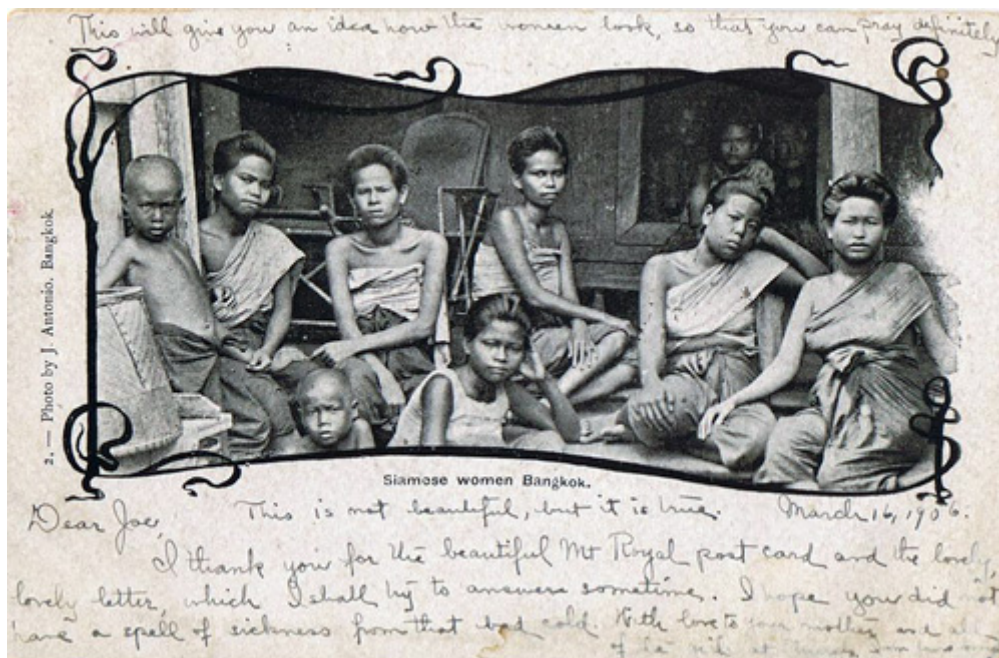 This will give you an idea how the women look, so that you can pray definitely
2. — Photo by J. Antonio. Bangkok.
Siamese women Bangkok.
Dear Joe, This is not beautiful, but it is true. March 16, 1906.
I thank you for the beautiful Mt Royal post card and the lovely,
lovely letter, which I shall try to answer sometime. I hope you did not
have a spell of sickness from that bad cold. With love to your mother and all